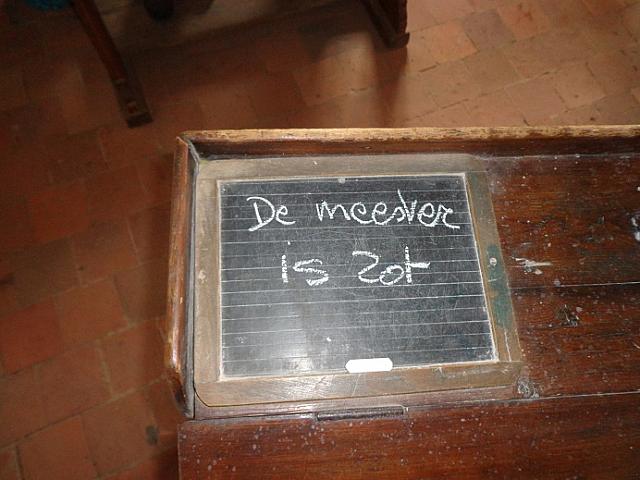 De meester
is zot